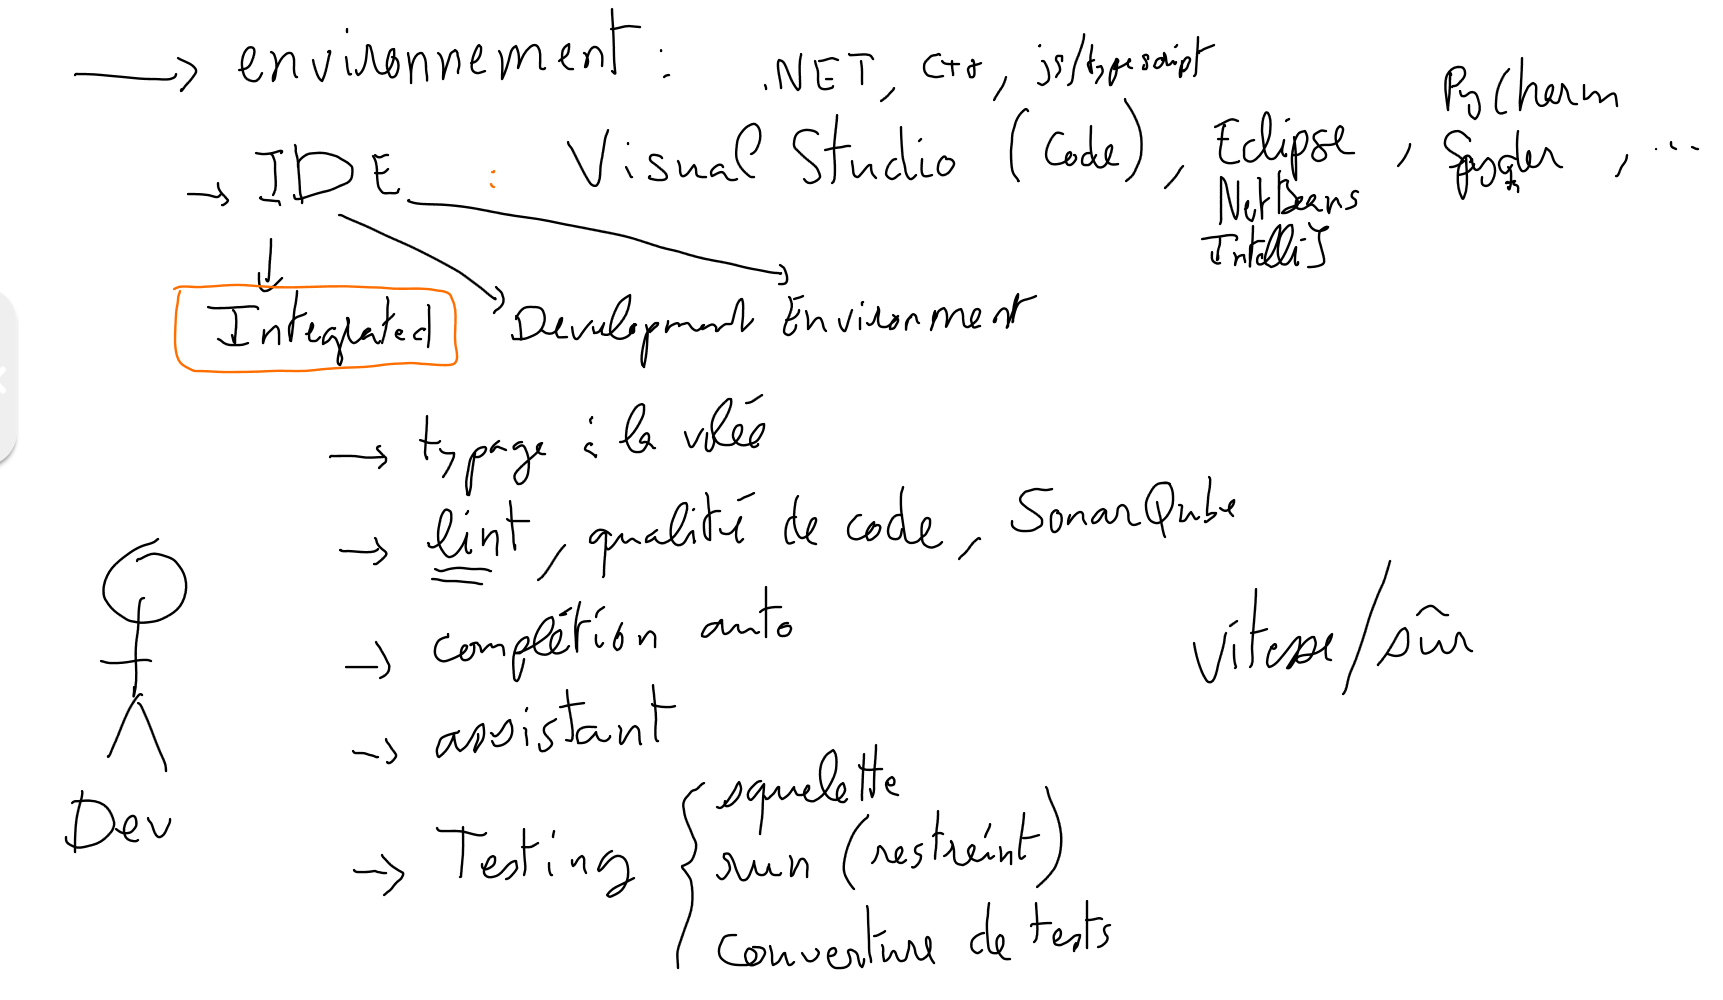 → environnement :
.NET, C++, js/typescript
→ IDE : Visual Studio (Code), Eclipse, PyCharm
NetBeans
IntelliJ
Spyder, ...
Integrated Development Environment
→ typage à la volée
→ lint, qualité de code, SonarQube
→ complétion auto
vitesse/sûr
→ assistant
→ Testing
squelette
run (restreint)
couverture de tests
Dev